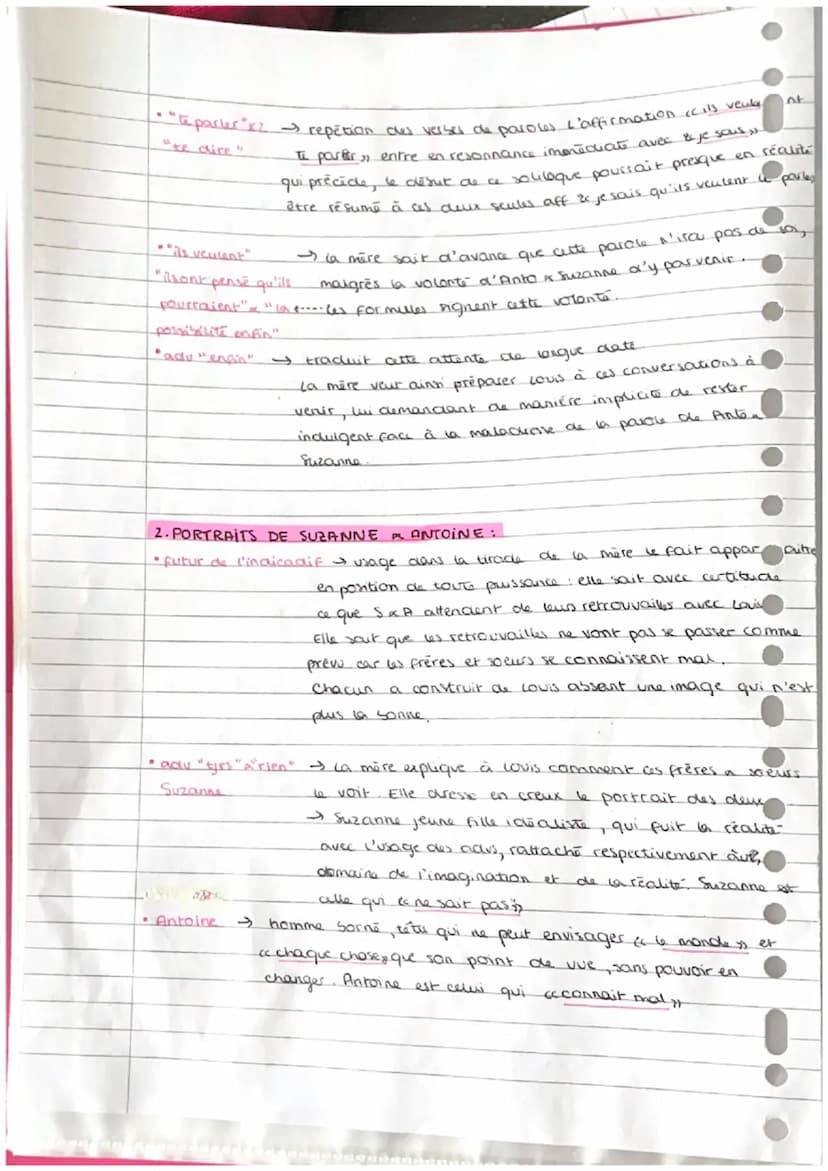 • "te parler" x2 → repétion des verbes de paroles L'affirmation << ils veulent
"te dire" te parler >> entre en resonnance immédiate avec << je sais >>
qui précède, le début de ce soliloque pourrait presque en réalité
être résumé à ces deux seules aff << je sais qu'ils veulent te parler
• "ils veulent" → la mère sait d'avance que cette parole n'ira pas de soi,
"ils ont pensé qu'ils malgrès la volonté d'Anto & Suzanne d'y parvenir.
pourraient" & "la ←---- les formules signent cette volonté.
possibilité enfin"
• adv "enfin" → traduit cette attente de longue date
la mère veut ainsi préparer Louis à ces conversations à
venir, lui demandant de manière implicite de rester
indulgent face à la maladresse de la parole de Anto &
Suzanne.
2. PORTRAITS DE SUZANNE & ANTOINE :
• futur de l'indicadif → usage dans la tirade de la mère le fait apparaitre
en position de toute puissance : elle sait avec certitude
ce que S & A attendent de leus retrouvailles avec Louis
Elle sait que les retrouvailles ne vont pas se passer comme
prévu car les frères et soeurs se connaissent mal.
Chacun a construit de Louis absent une image qui n'est
plus la bonne.
• adv "tjrs" "à rien" → La mère explique à Louis comment ces frères & soeurs
Suzanne le voit. Elle dresse en creux le portrait des deux
→ Suzanne jeune fille idéaliste, qui fuit la réalité
avec l'usage des advs, rattaché respectivement
domaine de l'imagination et de la réalité. Suzanne est
celle qui << ne sait pas >>
• Antoine → homme borné, têtu qui ne peut envisager << le monde >> et
<< chaque chose >> que son point de vue, sans pouvoir en
changer. Antoine est celui qui << connait mal >>